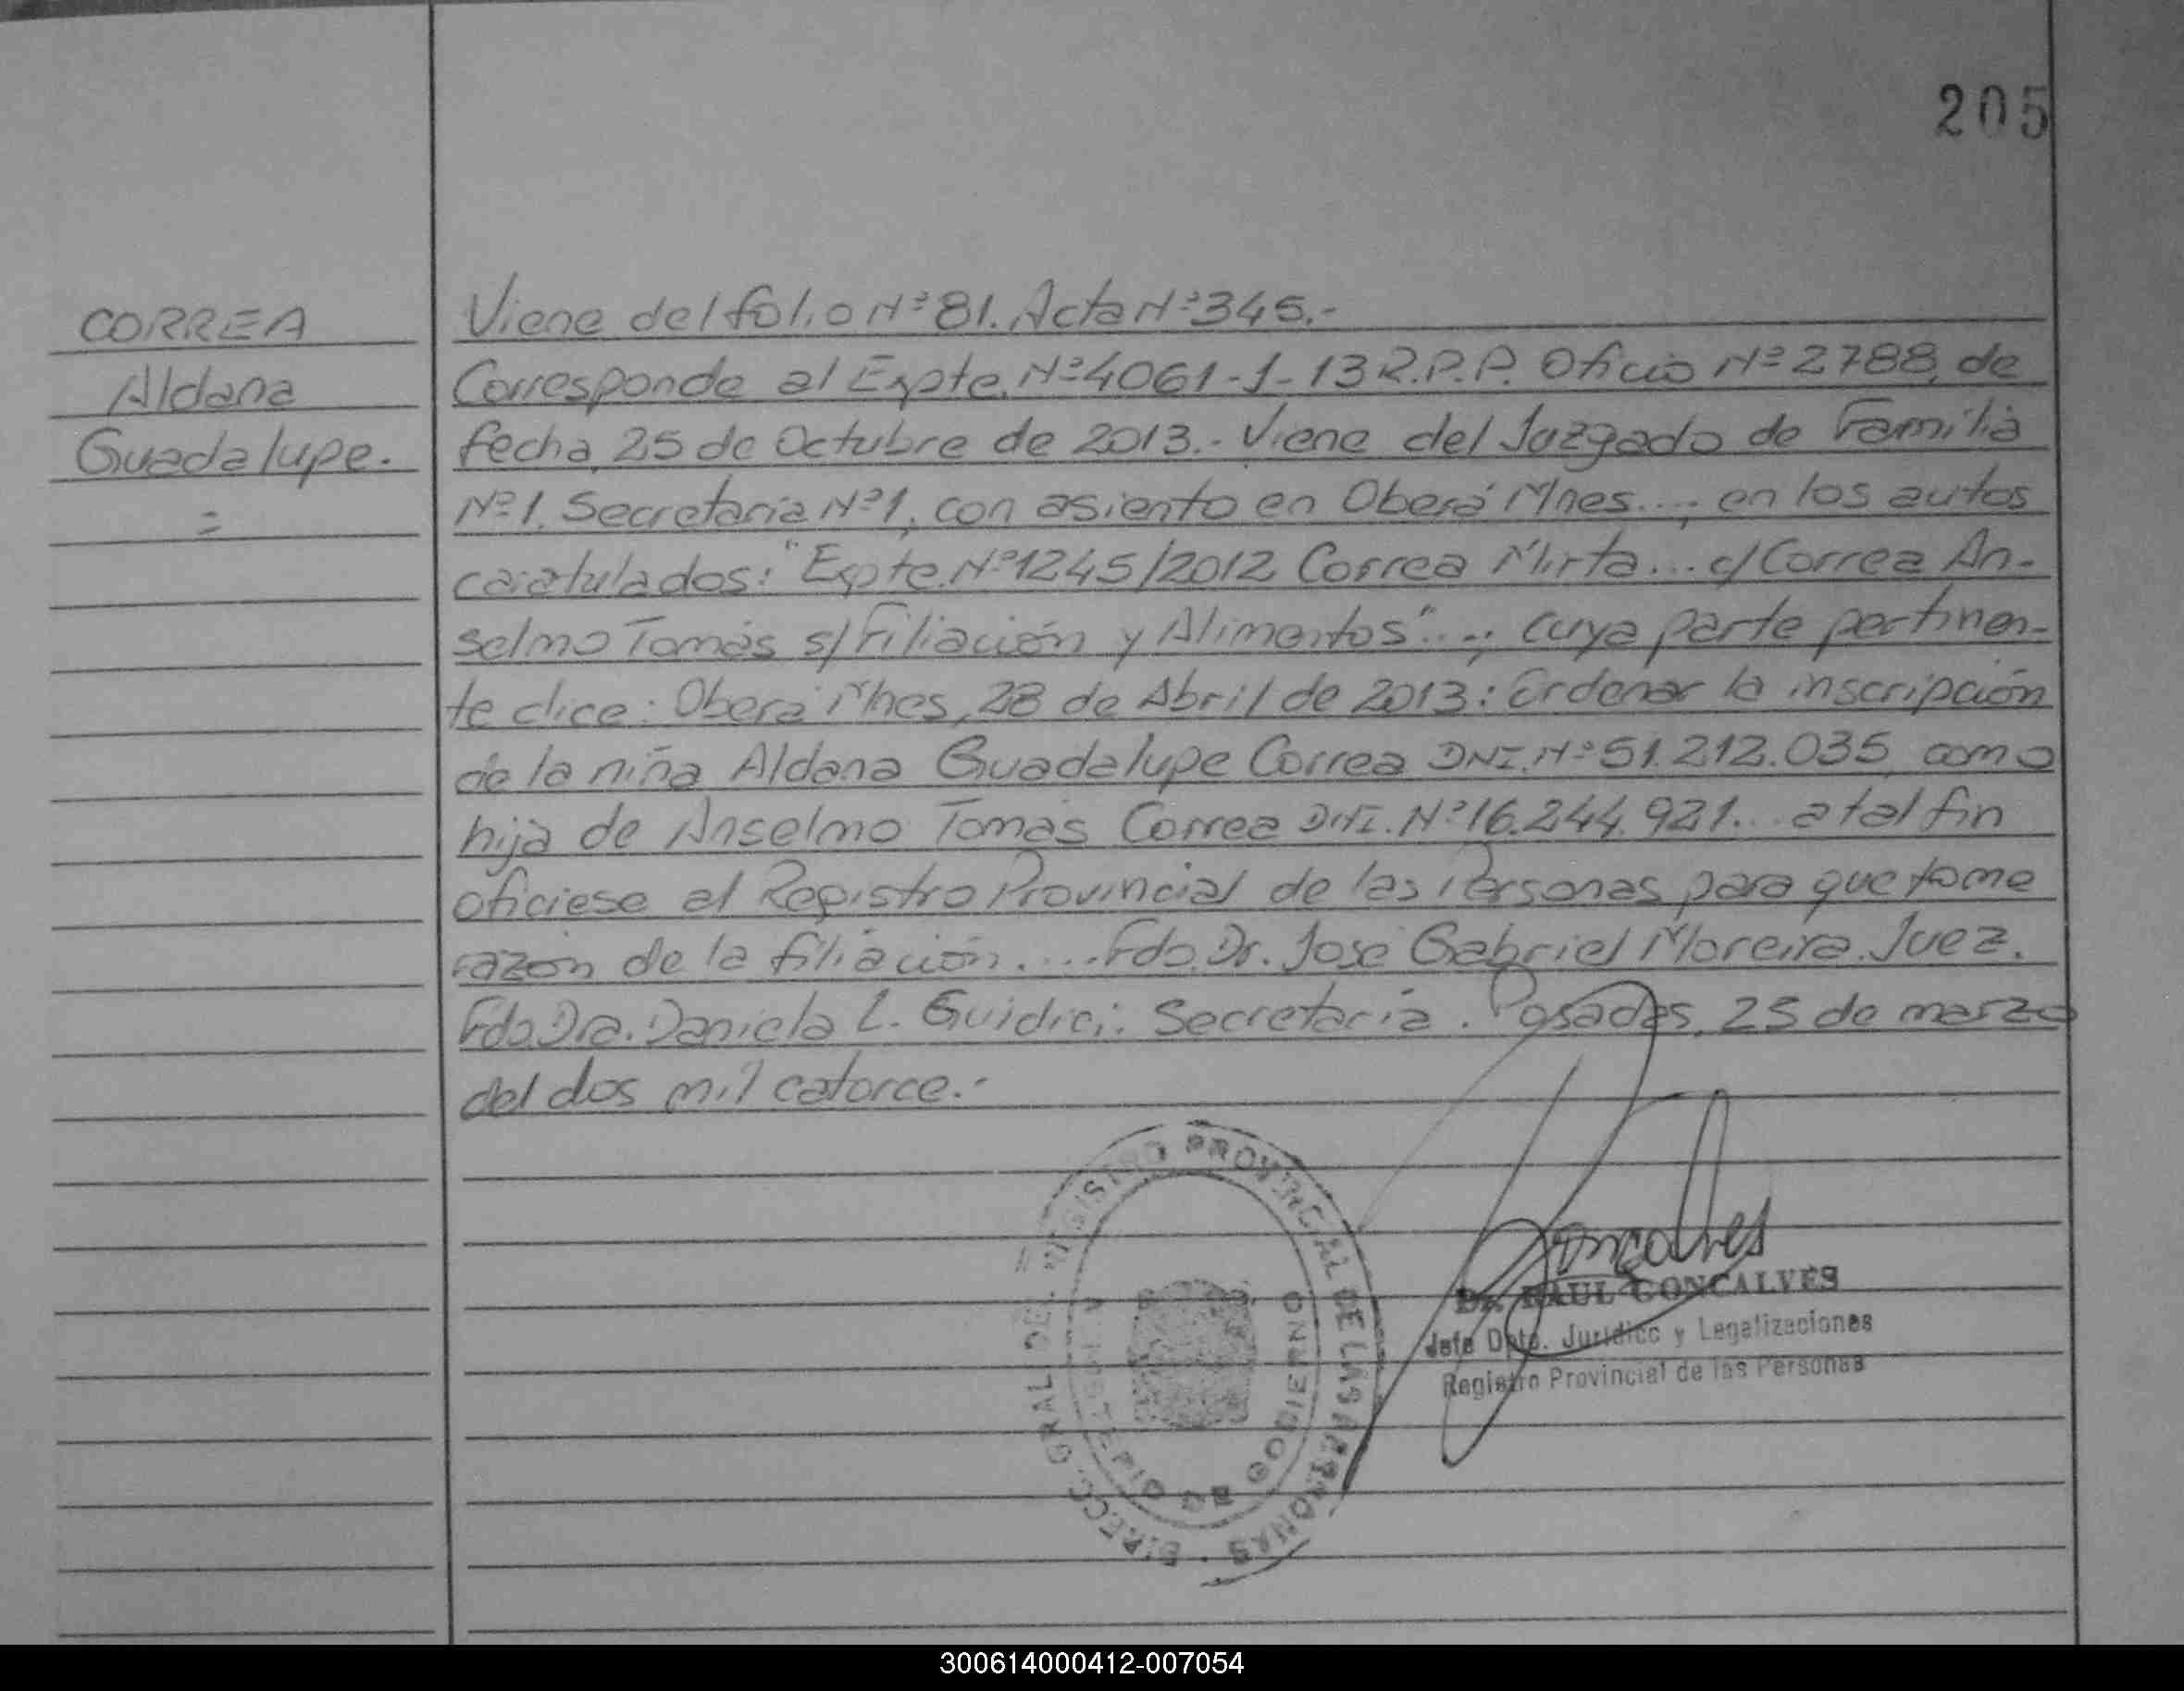 205
CORREA
Aldana
Guadalupe.
=
Viene del folio Nº 81. Acta Nº 345.-
Corresponde al Expte. Nº 4061-1-13 R.P.P. Oficio Nº 2788, de
fecha, 25 de Octubre de 2013.- Viene del Juzgado de Familia
Nº 1. Secretaria Nº 1, con asiento en Oberá Mnes...; en los autos
caratulados: "Expte. Nº 1245/2012 Correa Mirta... c/ Correa An-
selmo Tomás s/ Filiación y Alimentos"...; cuya parte pertinen-
te dice: Oberá Mnes, 28 de Abril de 2013: Ordenar la inscripción
de la niña Aldana Guadalupe Correa DNI. Nº 51.212.035, como
hija de Anselmo Tomas Correa DNI. Nº 16.244.921... a tal fin
oficiese al Registro Provincial de las Personas para que tome
razón de la filiación.... Fdo. Dr. José Gabriel Moreira. Juez.
Fdo Dra. Daniela L. Guidici. Secretaria. Posadas, 25 de marzo
del dos mil catorce.-
DIRECC. GRAL. DEL REGISTRO PROVINCIAL DE LAS PERSONAS
GOBIERNO
Gonçalves
Dr. RAUL GONCALVES
Jefe Dpto. Jurídico y Legalizaciones
Registro Provincial de las Personas
300614000412-007054